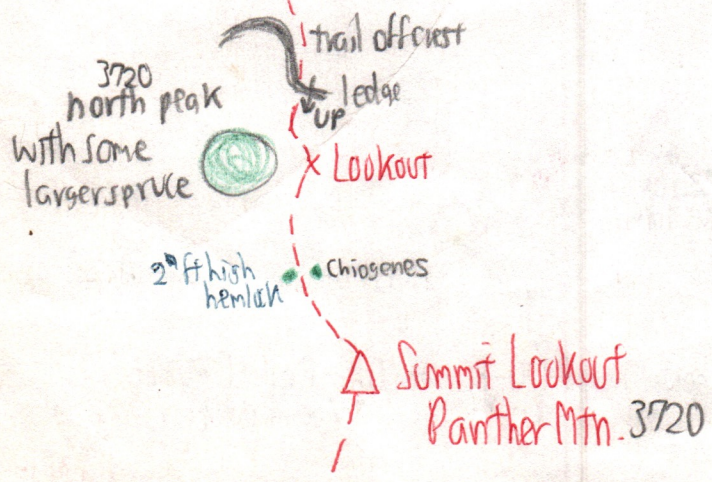 trail off crest
3720
north peak
ledge
UP
with some
larger spruce
Lookout
2" ft high
hemlok
Chiogenes
Summit Lookout
Panther Mtn. 3720